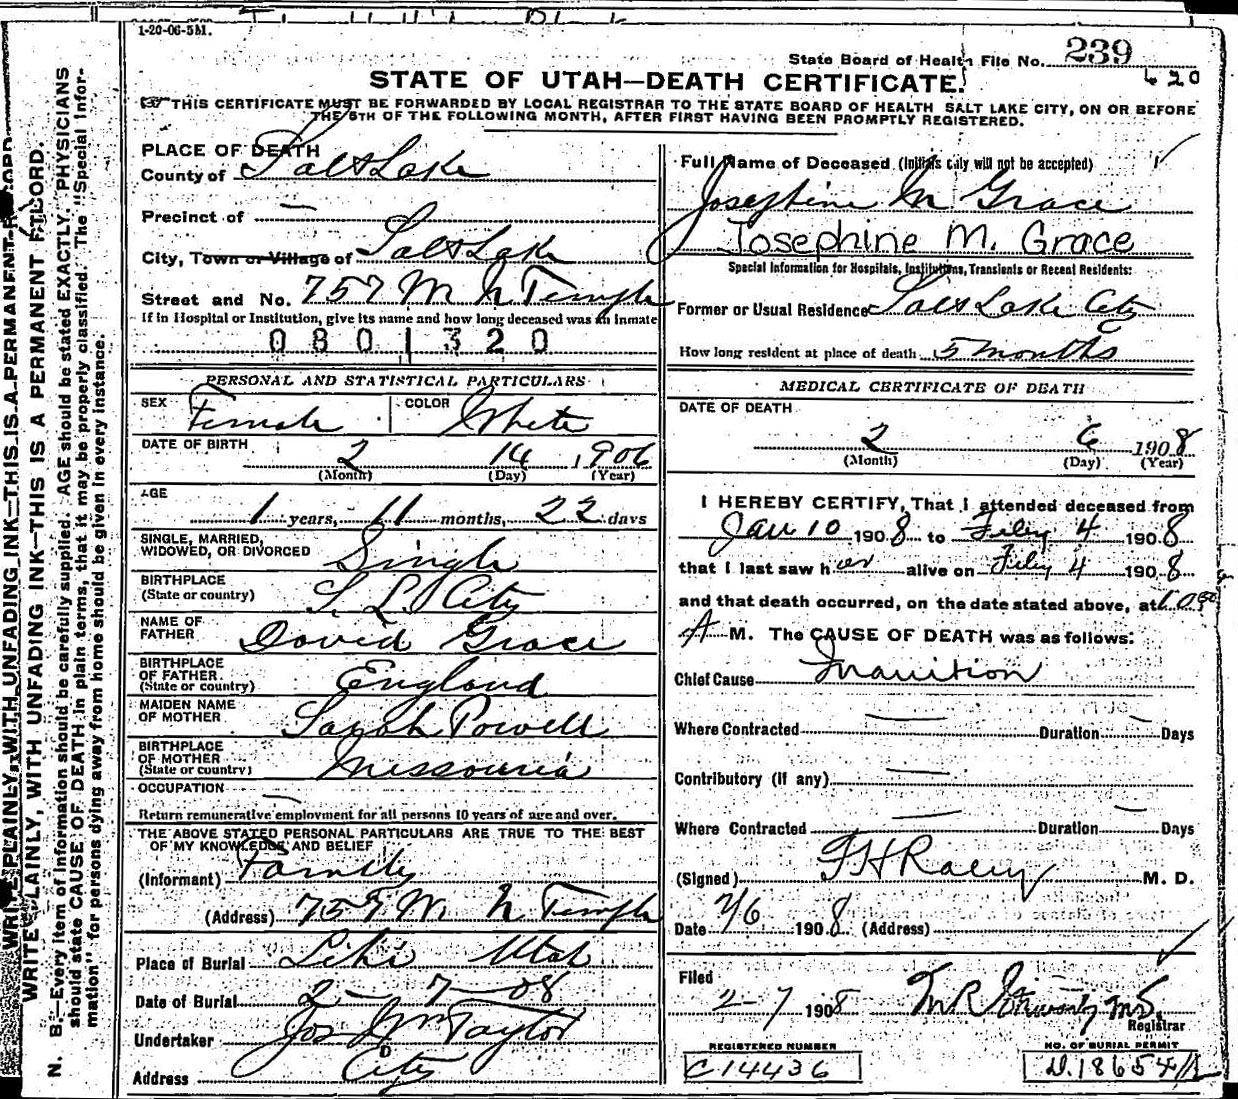 1-20-06-5M.
State Board of Health File No. 239
620
STATE OF UTAH—DEATH CERTIFICATE.
THIS CERTIFICATE MUST BE FORWARDED BY LOCAL REGISTRAR TO THE STATE BOARD OF HEALTH SALT LAKE CITY, ON OR BEFORE
THE 5TH OF THE FOLLOWING MONTH, AFTER FIRST HAVING BEEN PROMPTLY REGISTERED.
WRITE PLAINLY, WITH UNFADING INK—THIS IS A PERMANENT RECORD.
WRITE PLAINLY, WITH UNFADING INK—THIS IS A PERMANENT RECORD.
N. B.—Every item of information should be carefully supplied. AGE should be stated EXACTLY. PHYSICIANS
should state CAUSE OF DEATH in plain terms, that it may be properly classified. The "Special Infor-
mation" for persons dying away from home should be given in every instance.
PLACE OF DEATH
County of Salt Lake
Precinct of —
City, Town or Village of Salt Lake
Street and No. 757 W N Temple
If in Hospital or Institution, give its name and how long deceased was an inmate
0801320
PERSONAL AND STATISTICAL PARTICULARS
SEX Female COLOR White
DATE OF BIRTH
2 14 1906
(Month) (Day) (Year)
AGE
1 years, 11 months, 22 days
SINGLE, MARRIED,
WIDOWED, OR DIVORCED Single
BIRTHPLACE
(State or country) S. L. City
NAME OF
FATHER David Grace
BIRTHPLACE
OF FATHER
(State or country) England
MAIDEN NAME
OF MOTHER Sarah Powell
BIRTHPLACE
OF MOTHER
(State or country) Missouria
OCCUPATION —
Return remunerative employment for all persons 10 years of age and over.
THE ABOVE STATED PERSONAL PARTICULARS ARE TRUE TO THE BEST
OF MY KNOWLEDGE AND BELIEF
(Informant) Family
(Address) 757 W. N Temple
Place of Burial Lehi Utah
Date of Burial 2-7-08
Undertaker Jos Wm Taylor
D
Address City
Full Name of Deceased (Initials only will not be accepted)
Josephine M Grace
Josephine M. Grace
Special Information for Hospitals, Institutions, Transients or Recent Residents:
Former or Usual Residence Salt Lake City
How long resident at place of death 5 months
MEDICAL CERTIFICATE OF DEATH
DATE OF DEATH
2 6 1908
(Month) (Day) (Year)
I HEREBY CERTIFY, That I attended deceased from
Jan 10 1908 to Feby 4 1908
that I last saw her alive on Feby 4 1908
and that death occurred, on the date stated above, at
A M. The CAUSE OF DEATH was as follows:
Chief Cause Inanition
Where Contracted — Duration — Days
Contributory (if any) —
Where Contracted — Duration — Days
(Signed) F H Raley M. D.
Date 2/6 1908 (Address)
Filed
2-7 1908
Registrar
REGISTERED NUMBER
C14436
NO. OF BURIAL PERMIT
D.18654